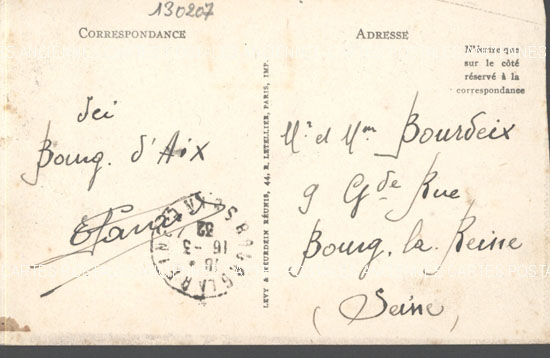 130207
CORRESPONDANCE
ADRESSE
N'écrire que
sur le côté
réservé à la
correspondance
Ici
Bourg. d'Aix
Mr et Mme Bourdeix
9 Gde Rue
Bourg. la. Reine
(Seine)
LEVY & NEURDEIN RÉUNIS, 44, R. LETELLIER, PARIS, IMP.
16 - 3
32